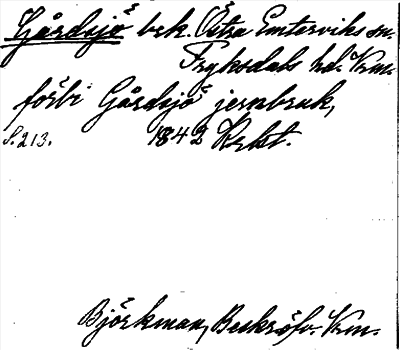 Gårdsjö bek. Östra Emterviks sn.
Fryksdals hd. Vrm.
förbi Gårdsjö jernbruk,
S. 213. 1842 Krkt.
Björkman, Beskrifn. Vrm.